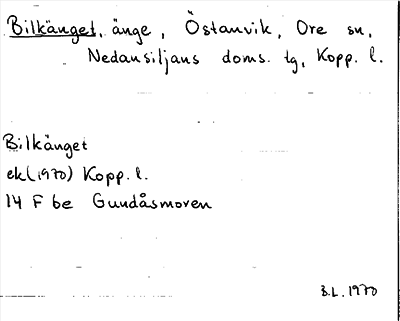 Bilkänget, änge, Östanvik, Ore sn,
Nedansiljans doms. tg, Kopp. l.
Bilkänget
ek (1970) Kopp. l.
14 F be Gundåsmoren
B.L. 1970